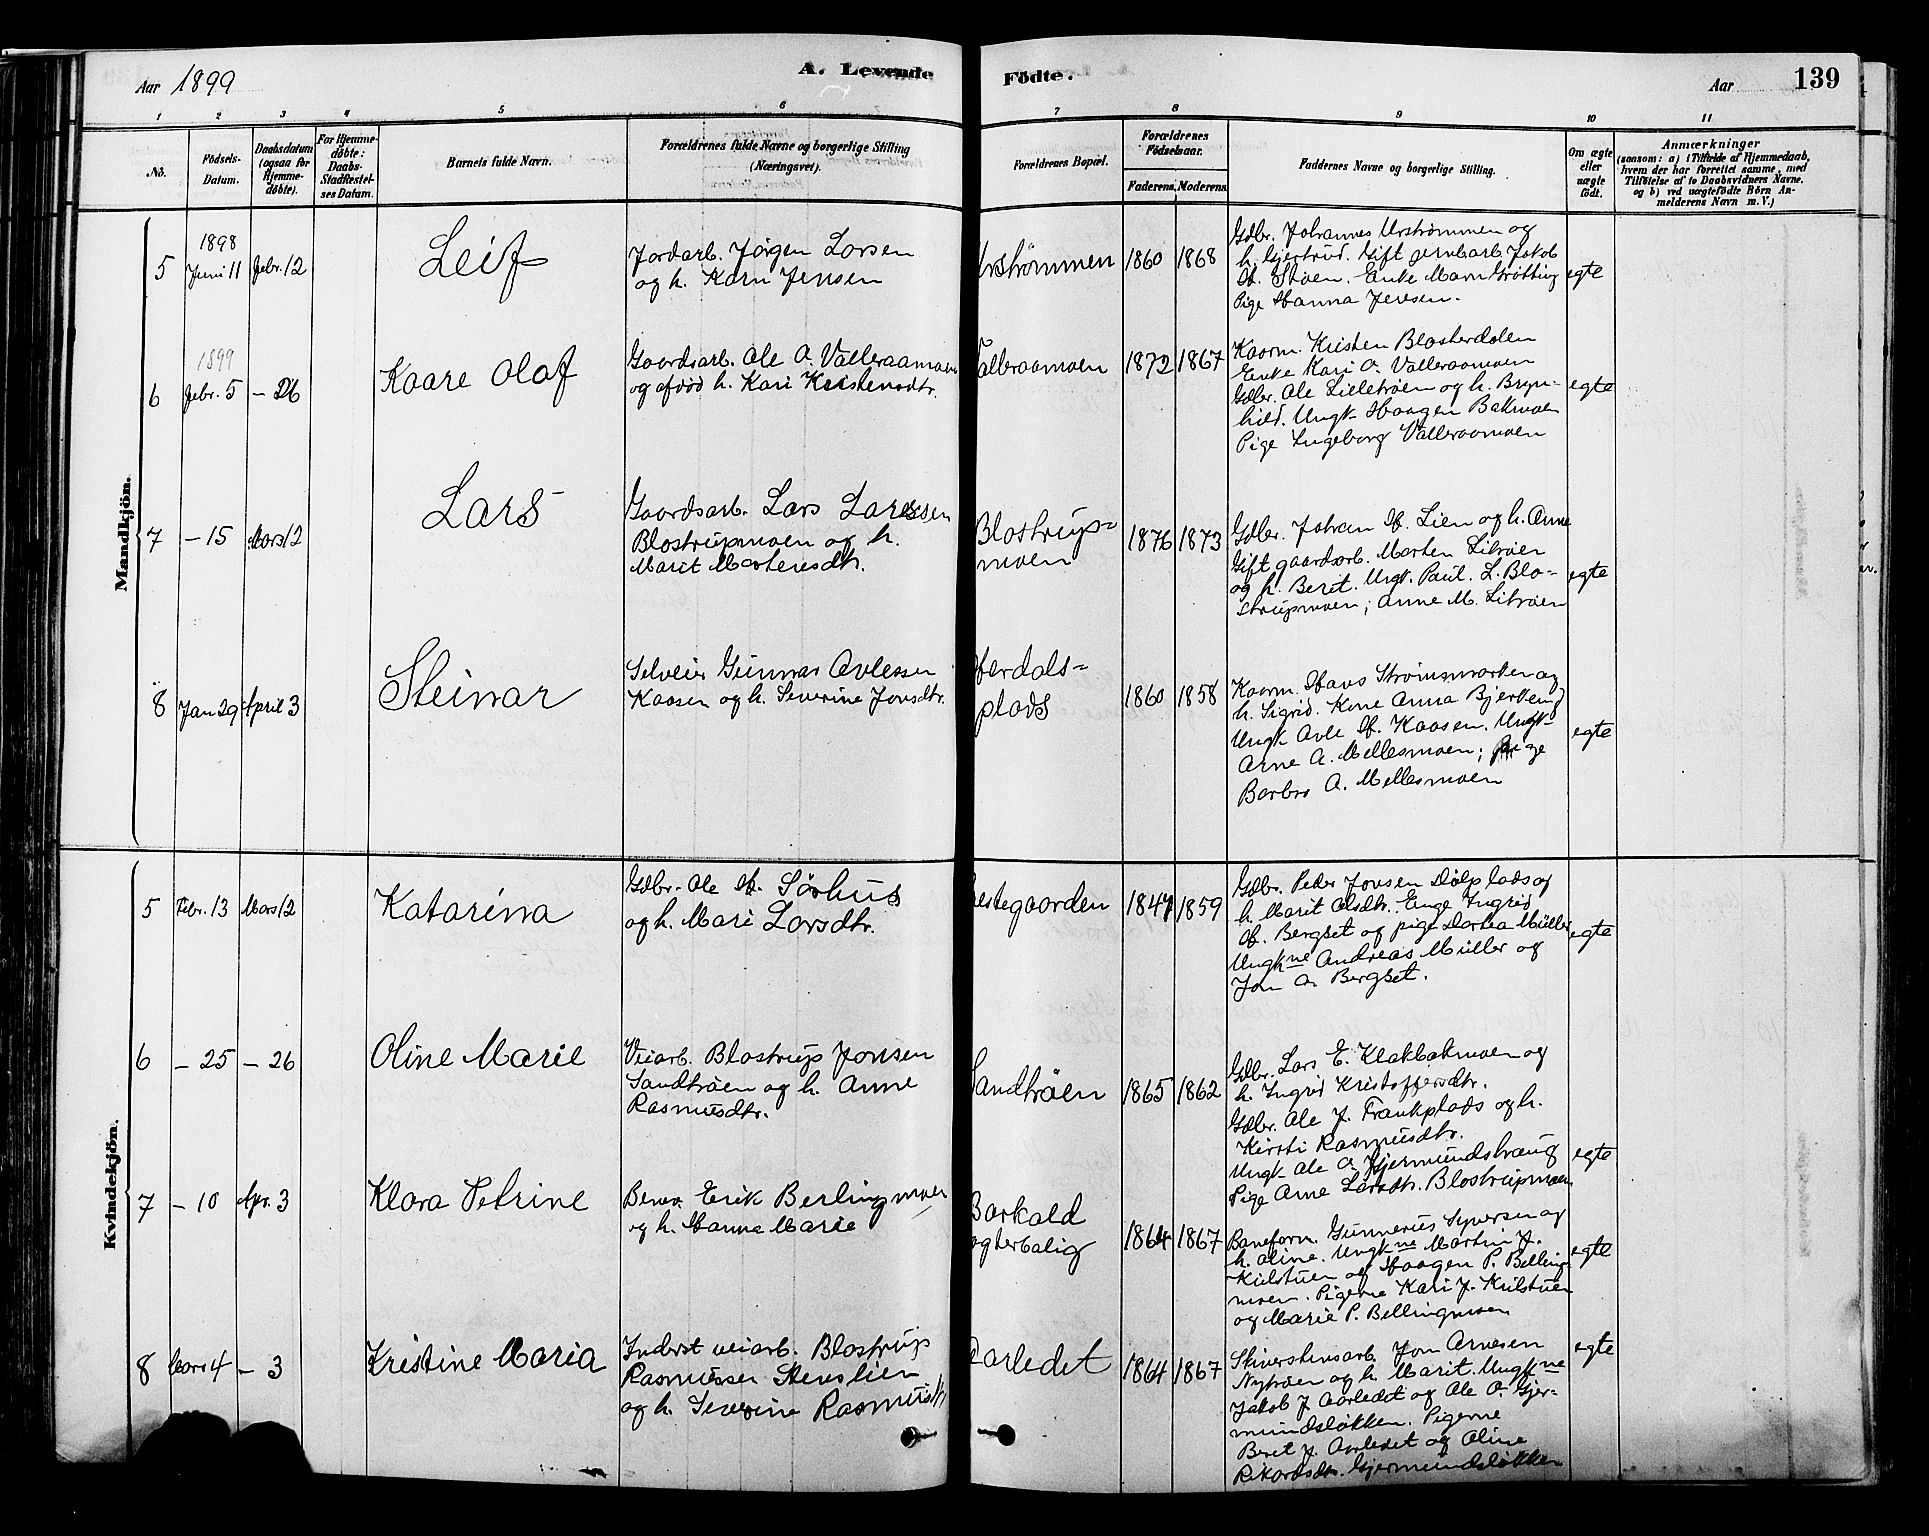 Aar 1899
A. Levende
Födte.
Aar
139
1 2 3 4 5 6 7 8 9 10 11
No.
Födsels-
Datum.
Daabsdatum
(ogsaa for
Hjemme-
döbte).
For Hjemme-
döbte:
Daabs-
Stadfæstel-
ses Datum.
Barnets fulde Navn.
Forældrenes fulde Navne og borgerlige Stilling
(Næringsvei).
Forældrenes Bopæl.
Forældrenes
Födselsaar.
Faderens. Moderens.
Faddernes Navne og borgerlige Stilling.
Om ægte
eller
uægte
födt.
Anmærkninger
(saasom: a) i Tilfælde af Hjemmedaab,
hvem der har forrettet samme, med
Tilföielse af to Daabsvidners Navne,
og b) ved uægtefödte Börn An-
melderens Navn m. V.)
Mandkjön.
5
1898
Juni 11
Febr. 12
Leif
Jordarb. Jörgen Larsen
og h. Karn Jensen
Urströmmen
1860
1868
Gdbr. Johannes Urströmmen og
h. Gjertrud. Gift jernbarb. Jakob
H. Stöen. Enke Marn Grötting
Pige Hanna Jensen.
egte
6
1899
Febr. 5
- 26
Kaare Olaf
Gaardsarb. Ole O. Valleraamoen
og afdöd h. Kari Kristensdtr.
Valleraamoen
1872
1867
Kaarm. Kristen Blosterdalen
Enke Kari O. Valleraamoen
Gdbr. Ole Lilletröen og h. Bryn-
hild. Ungk. Haagen Bakmoen
Pige Ingeborg Valleraamoen
egte
7
- 15
Mars 12
Lars
Gaardsarb. Lars Larssen
Blostrupmoen og h.
Marit Mortensdtr.
Blostrup-
moen
1876
1873
Gdbr. Johan H. Lien og h. Anne
Gift gaardsarb. Morten Litröen
og h. Beret. Ungk. Paul. L. Blo-
strupmoen; Anne M. Litröen
egte
8
Jan 29
April 3
Steinar
Selveier Gunnar Avlessen
Kaasen og h. Severine Jonsdtr.
plads
1860
1858
Kaarm. Hans Strömsmarken og
h. Sigrid. Kone Anna Bjerkeng
Ungk Avle H. Kaasen. Ungk.
Arne A. Mellesmoen; Pige
Barbro A. Mellesmoen
egte
Kvindekjön.
5
Febr. 13
Mars 12
Katarina
Gdbr. Ole H. Sörhus
og h. Mari Larsdtr.
Prestegaarden
1847
1859
Gdbr. Peder Jonsen Dölplads og
h. Marit Olsdtr. Enge Ingrid
H. Bergset og pige Dortea Müller
Ungkne Andreas Müller og
Jon O. Bergset.
egte
6
- 25
- 26
Oline Marie
Veiarb. Blostrup Jonsen
Sandtröen og h. Anne
Rasmusdtr.
Sandtröen
1865
1862
Gdbr. Lars E. Klokbakmoen og
h. Ingrid Kristoffersdtr.
Gdbr. Ole J. Trønkplads og h.
Kirsti Rasmusdtr.
Ungk Ole O. Gjermundshaug
Pige Arne Larsdtr. Blostrupmoen
egte
7
- 10
Apr. 3
Klara Petrine
Banev. Erik Berlingmoen
og h. Hanna Marie
Barkald
vogterbolig
1864
1867
Baneform. Gunnerius Syversen og
h. Oline. Ungkne Martin J.
Kulstuen og Haagen P. Belling-
moen. Pigerne Kari J. Kulstuen
og Marie P. Bellingmoen
egte
8
Mars 4
- 3
Kristine Maria
Inderst veiarb. Blostrup
Rasmussen Stenslien
og h. Severine Rasmusdtr
Aarledet
1864
1867
Skiverstensarb. Jon Arnesen
Nytröen og h. Marit. Ungkne
Jakob J Aarledet og Ole O. Gjer-
mundslökken. Pigerne
Beret J. Aarledet og Oline
Rikardsdtr. Gjermundslökken
egte